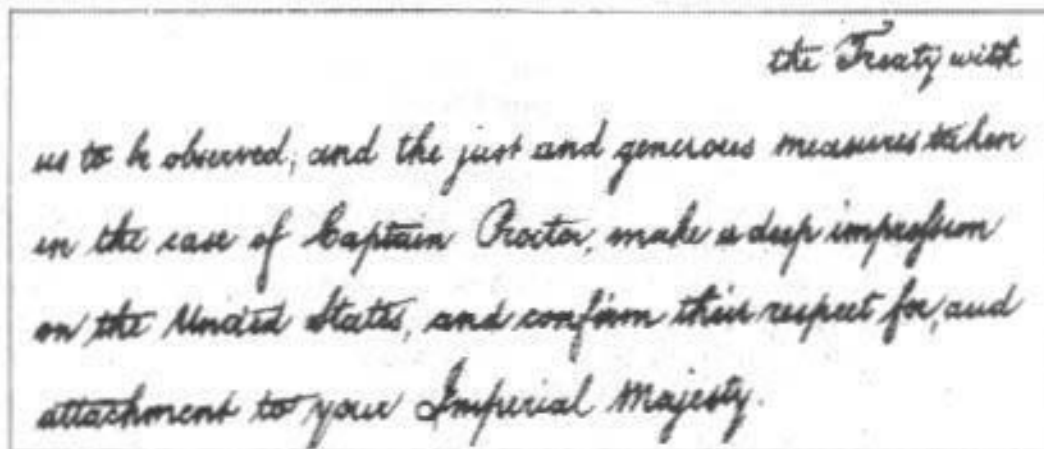 the Treaty with
us to be observed; and the just and generous measures taken
in the case of Captain Proctor, make a deep impreſsion
on the United States, and confirm their respect for, and
attachment to your Imperial Majesty.